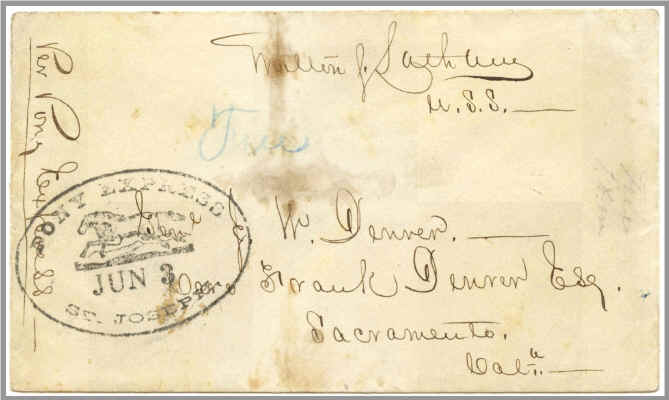 Milton S. Latham
U.S.S.
Free
Per Pony Express
PONY EXPRESS
JUN 3
ST. JOSEPH
Genl J. W. Denver.
Care Frank Denver Esq.
Sacramento.
Cala.